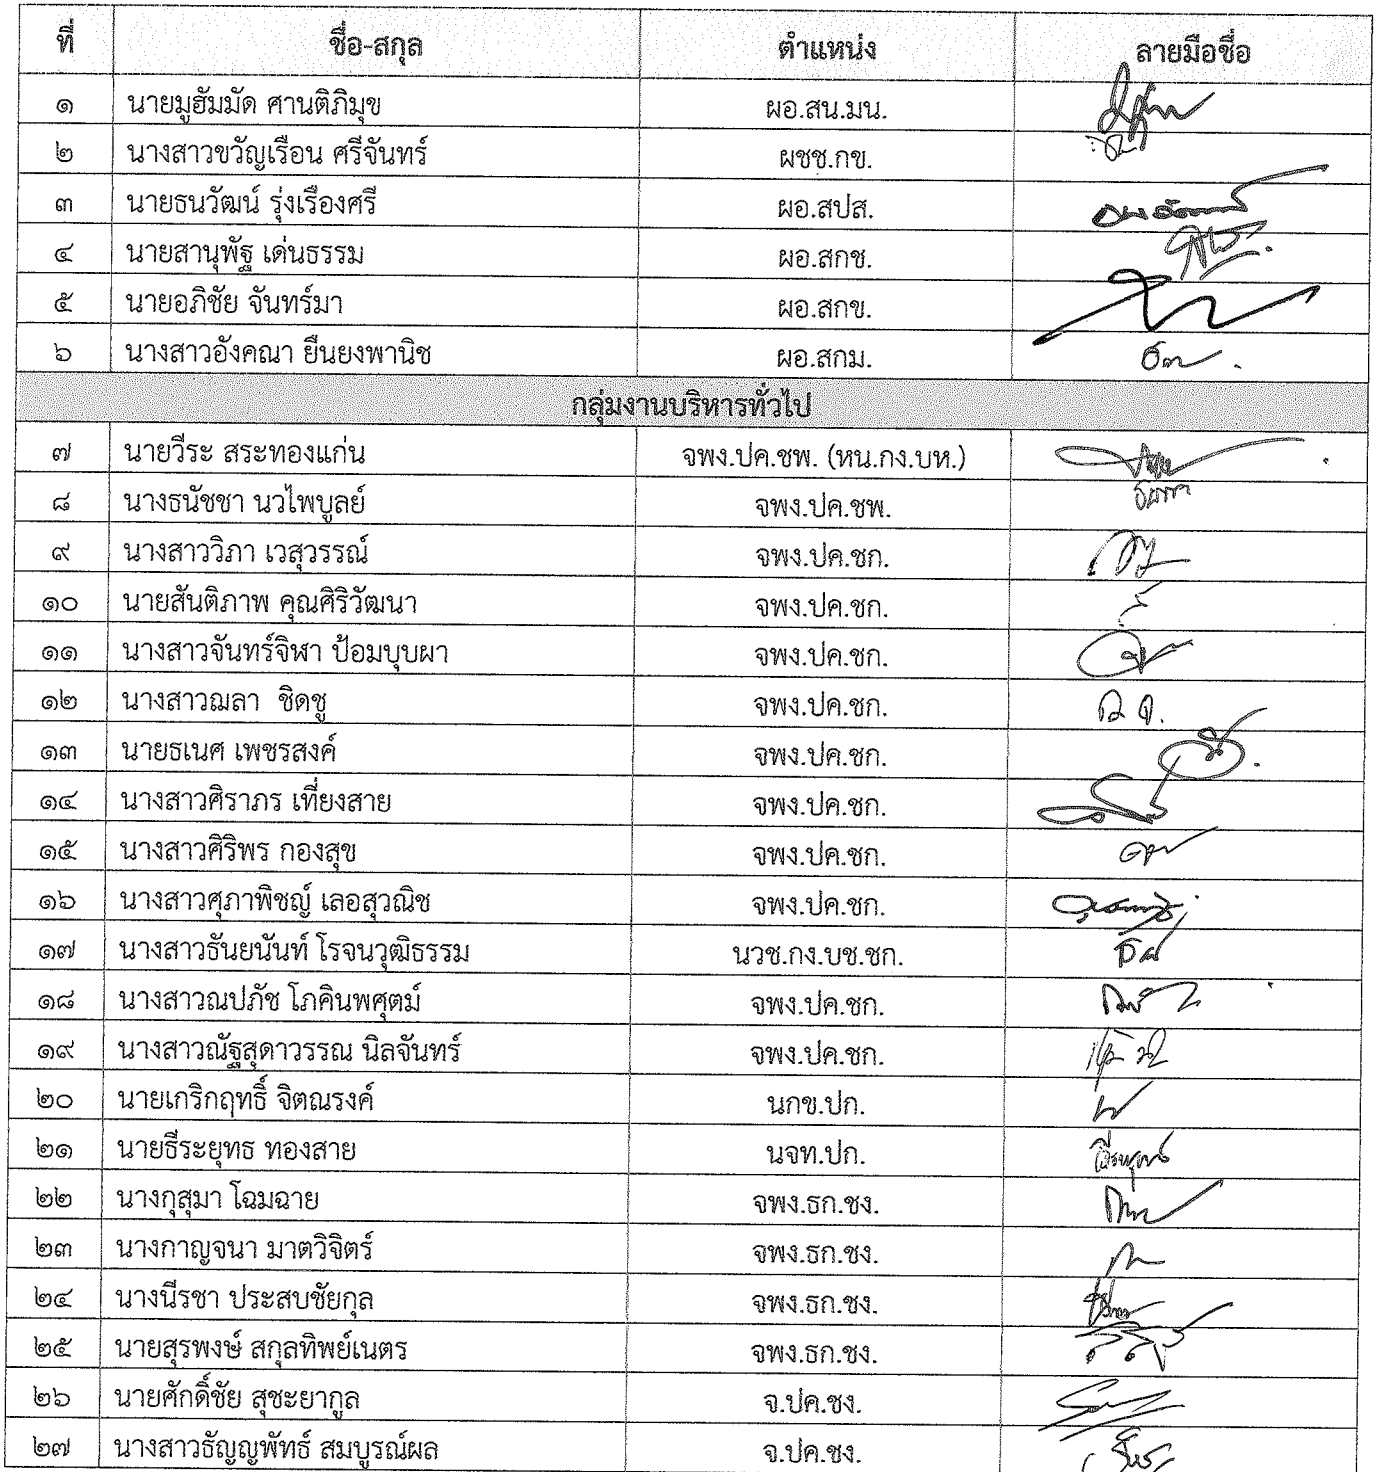 ที่ ชื่อ-สกุล ตำแหน่ง ลายมือชื่อ
๑ นายมูฮัมมัด ศานติภิมุข ผอ.สน.มน.
๒ นางสาวขวัญเรือน ศรีจันทร์ ผชช.กข.
๓ นายธนวัฒน์ รุ่งเรืองศรี ผอ.สปส.
๔ นายสานุพัฐ เด่นธรรม ผอ.สกช.
๕ นายอภิชัย จันทร์มา ผอ.สกข.
๖ นางสาวอังคณา ยืนยงพานิช ผอ.สกม.
กลุ่มงานบริหารทั่วไป
๗ นายวีระ สระทองแก่น จพง.ปค.ชพ. (หน.กง.บห.)
๘ นางธนัชชา นวไพบูลย์ จพง.ปค.ชพ.
๙ นางสาววิภา เวสุวรรณ์ จพง.ปค.ชก.
๑๐ นายสันติภาพ คุณศิริวัฒนา จพง.ปค.ชก.
๑๑ นางสาวจันทร์จิฬา ป้อมบุบผา จพง.ปค.ชก.
๑๒ นางสาวฌลา ชิดชู จพง.ปค.ชก.
๑๓ นายธเนศ เพชรสงค์ จพง.ปค.ชก.
๑๔ นางสาวศิราภร เที่ยงสาย จพง.ปค.ชก.
๑๕ นางสาวศิริพร กองสุข จพง.ปค.ชก.
๑๖ นางสาวศุภาพิชญ์ เลอสุวณิช จพง.ปค.ชก.
๑๗ นางสาวธันยนันท์ โรจนวุฒิธรรม นวช.กง.บช.ชก.
๑๘ นางสาวณปภัช โภคินพศุตม์ จพง.ปค.ชก.
๑๙ นางสาวณัฐสุดาวรรณ นิลจันทร์ จพง.ปค.ชก.
๒๐ นายเกริกฤทธิ์ จิตณรงค์ นกข.ปก.
๒๑ นายธีระยุทธ ทองสาย นจท.ปก.
๒๒ นางกุสุมา โฉมฉาย จพง.ธก.ชง.
๒๓ นางกาญจนา มาตวิจิตร์ จพง.ธก.ชง.
๒๔ นางนีรชา ประสบชัยกุล จพง.ธก.ชง.
๒๕ นายสุรพงษ์ สกุลทิพย์เนตร จพง.ธก.ชง.
๒๖ นายศักดิ์ชัย สุชะยากูล จ.ปค.ชง.
๒๗ นางสาวธัญญพัทธ์ สมบูรณ์ผล จ.ปค.ชง.